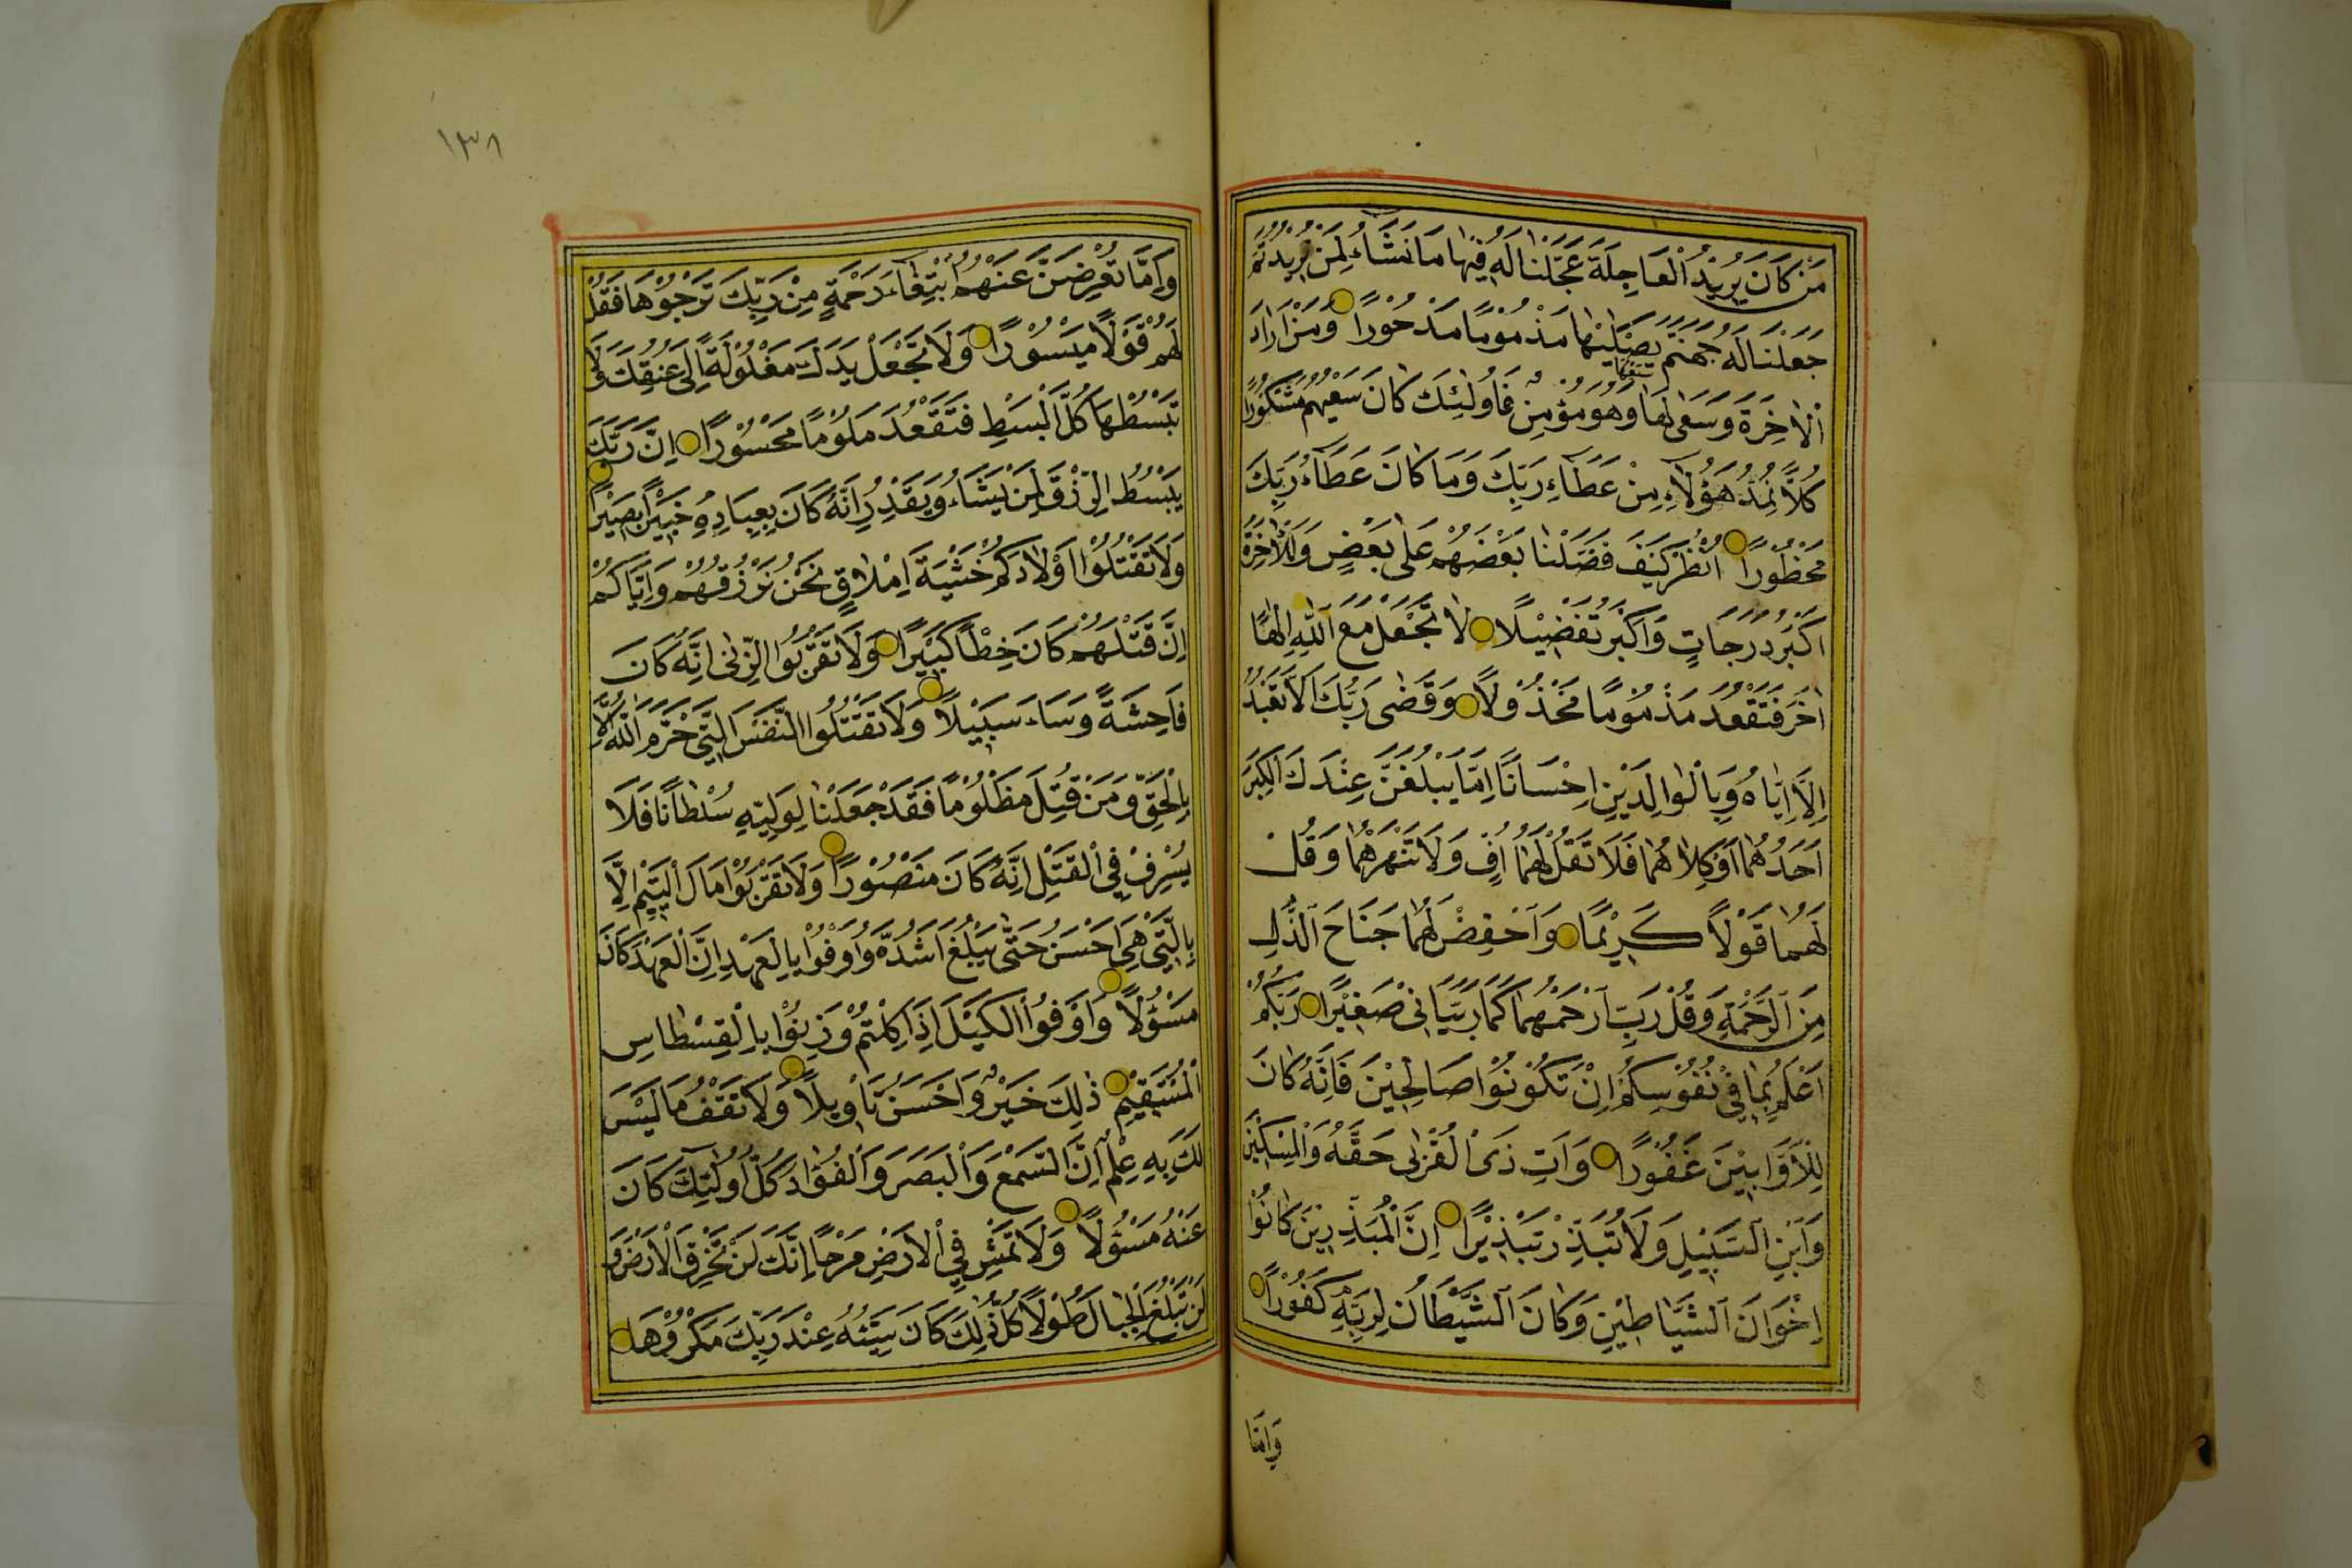 مَنْ كَانَ يُرِيْدُ الْعَاجِلَةَ عَجَّلْنَا لَهُ فِيْهَا مَا نَشَاءُ لِمَنْ نُرِيْدُ ثُمَّ
جَعَلْنَا لَهُ جَهَنَّمَ يَصْلٰيهَا مَذْمُوْمًا مَدْحُوْرًا وَمَنْ اَرَادَ
الْاٰخِرَةَ وَسَعٰى لَهَا سَعْيَهَا وَهُوَ مُؤْمِنٌ فَاُولٰئِكَ كَانَ سَعْيُهُمْ مَشْكُوْرًا
كُلًّا نُمِدُّ هٰؤُلَاءِ مِنْ عَطَاءِ رَبِّكَ وَمَا كَانَ عَطَاءُ رَبِّكَ
مَحْظُوْرًا اُنْظُرْ كَيْفَ فَضَّلْنَا بَعْضَهُمْ عَلٰى بَعْضٍ وَلَلْاٰخِرَةُ
اَكْبَرُ دَرَجَاتٍ وَاَكْبَرُ تَفْضِيْلًا لَا تَجْعَلْ مَعَ اللّٰهِ اِلٰهًا
اٰخَرَ فَتَقْعُدَ مَذْمُوْمًا مَخْذُوْلًا وَقَضٰى رَبُّكَ اَلَّا تَعْبُدُوْا
اِلَّا اِيَّاهُ وَبِالْوَالِدَيْنِ اِحْسَانًا اِمَّا يَبْلُغَنَّ عِنْدَكَ الْكِبَرَ
اَحَدُهُمَا اَوْ كِلَاهُمَا فَلَا تَقُلْ لَهُمَا اُفٍّ وَلَا تَنْهَرْهُمَا وَقُلْ
لَهُمَا قَوْلًا كَرِيْمًا وَاخْفِضْ لَهُمَا جَنَاحَ الذُّلِّ
مِنَ الرَّحْمَةِ وَقُلْ رَبِّ ارْحَمْهُمَا كَمَا رَبَّيَانِى صَغِيْرًا رَبُّكُمْ
اَعْلَمُ بِمَا فِيْ نُفُوْسِكُمْ اِنْ تَكُوْنُوْا صَالِحِيْنَ فَاِنَّهُ كَانَ
لِلْاَوَّابِيْنَ غَفُوْرًا وَاٰتِ ذَى الْقُرْبٰى حَقَّهُ وَالْمِسْكِيْنَ
وَابْنَ السَّبِيْلِ وَلَا تُبَذِّرْ تَبْذِيْرًا اِنَّ الْمُبَذِّرِيْنَ كَانُوْا
اِخْوَانَ الشَّيَاطِيْنِ وَكَانَ الشَّيْطَانُ لِرَبِّهِ كَفُوْرًا
وَاِمَّا
١٣٨
وَاِمَّا تُعْرِضَنَّ عَنْهُمُ ابْتِغَاءَ رَحْمَةٍ مِنْ رَبِّكَ تَرْجُوْهَا فَقُلْ
لَهُمْ قَوْلًا مَيْسُوْرًا وَلَا تَجْعَلْ يَدَكَ مَغْلُوْلَةً اِلٰى عُنُقِكَ وَلَا
تَبْسُطْهَا كُلَّ الْبَسْطِ فَتَقْعُدَ مَلُوْمًا مَحْسُوْرًا اِنَّ رَبَّكَ
يَبْسُطُ الرِّزْقَ لِمَنْ يَشَاءُ وَيَقْدِرُ اِنَّهُ كَانَ بِعِبَادِهِ خَبِيْرًا بَصِيْرًا
وَلَا تَقْتُلُوْا اَوْلَادَكُمْ خَشْيَةَ اِمْلَاقٍ نَحْنُ نَرْزُقُهُمْ وَاِيَّاكُمْ
اِنَّ قَتْلَهُمْ كَانَ خِطْأً كَبِيْرًا وَلَا تَقْرَبُوا الزِّنٰى اِنَّهُ كَانَ
فَاحِشَةً وَسَاءَ سَبِيْلًا وَلَا تَقْتُلُوا النَّفْسَ الَّتِى حَرَّمَ اللّٰهُ اِلَّا
بِالْحَقِّ وَمَنْ قُتِلَ مَظْلُوْمًا فَقَدْ جَعَلْنَا لِوَلِيِّهِ سُلْطَانًا فَلَا
يُسْرِفْ فِى الْقَتْلِ اِنَّهُ كَانَ مَنْصُوْرًا وَلَا تَقْرَبُوْا مَالَ الْيَتِيْمِ اِلَّا
بِالَّتِى هِيَ اَحْسَنُ حَتّٰى يَبْلُغَ اَشُدَّهُ وَاَوْفُوْا بِالْعَهْدِ اِنَّ الْعَهْدَ كَانَ
مَسْؤُلًا وَاَوْفُوا الْكَيْلَ اِذَا كِلْتُمْ وَزِنُوْا بِالْقِسْطَاسِ
الْمُسْتَقِيْمِ ذٰلِكَ خَيْرٌ وَاَحْسَنُ تَأْوِيلًا وَلَا تَقْفُ مَا لَيْسَ
لَكَ بِهِ عِلْمٌ اِنَّ السَّمْعَ وَالْبَصَرَ وَالْفُؤَادَ كُلُّ اُولٰئِكَ كَانَ
عَنْهُ مَسْؤُلًا وَلَا تَمْشِ فِى الْاَرْضِ مَرَحًا اِنَّكَ لَنْ تَخْرِقَ الْاَرْضَ وَ
لَنْ تَبْلُغَ الْجِبَالَ طُوْلًا كُلُّ ذٰلِكَ كَانَ سَيِّئُهُ عِنْدَ رَبِّكَ مَكْرُوْهًا